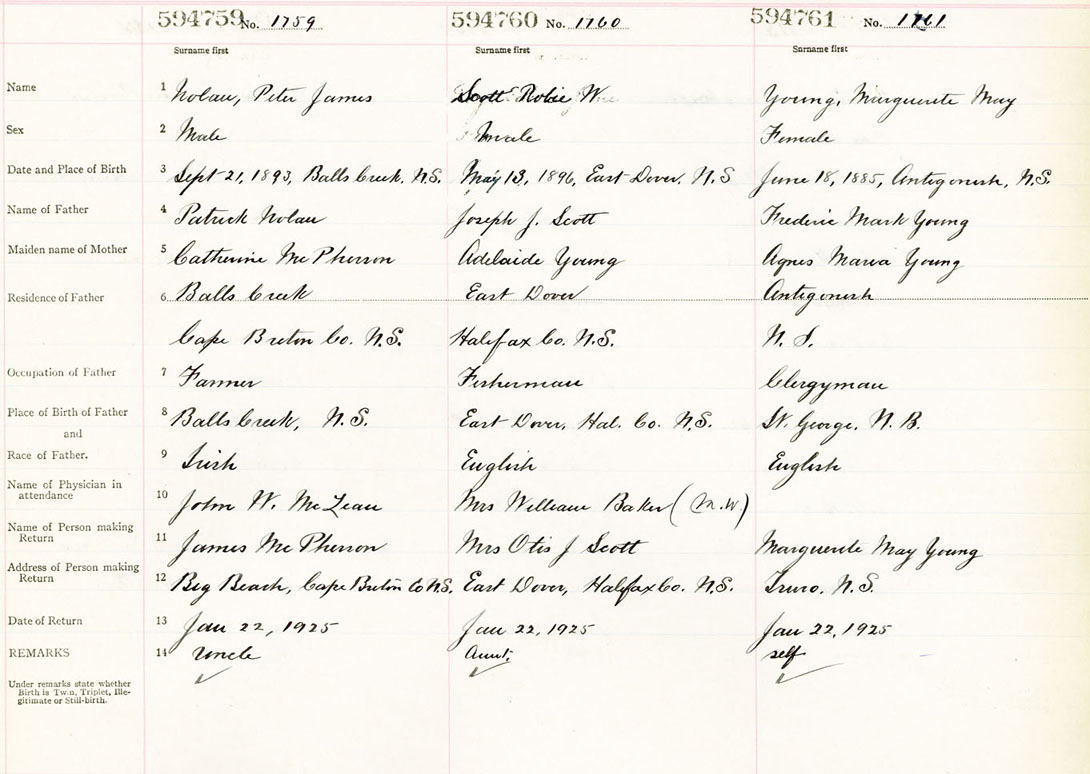 594759 No. 1759 594760 No. 1760 594761 No. 1761
Surname first Surname first Surname first
Name 1 Nolan, Peter James Scott Robie W. Young, Marguerite May
Sex 2 Male Male Female
Date and Place of Birth 3 Sept 21, 1893, Balls Creek, N.S. May 13, 1896, East Dover, N.S June 18, 1885, Antigonish, N.S.
Name of Father 4 Patrick Nolan Joseph J. Scott Frederic Mark Young
Maiden name of Mother 5 Catherine McPherson Adelaide Young Agnes Maria Young
Residence of Father 6 Balls Creek East Dover Antigonish
Cape Breton Co. N.S. Halifax Co. N.S. N. S.
Occupation of Father 7 Farmer Fisherman Clergyman
Place of Birth of Father 8 Balls Creek, N.S. East Dover, Hal. Co. N.S. St. George, N. B.
and
Race of Father. 9 Irish English English
Name of Physician in
attendance 10 John W. McLean Mrs William Baker (M.W.)
Name of Person making
Return 11 James McPherson Mrs Otis J Scott Marguerite May Young
Address of Person making
Return 12 Big Beach, Cape Breton Co N.S. East Dover, Halifax Co. N.S. Truro. N.S.
Date of Return 13 Jan 22, 1925 Jan 22, 1925 Jan 22, 1925
REMARKS 14 Uncle Aunt. self
Under remarks state whether
Birth is Twin, Triplet, Ille-
gitimate or Still-birth.